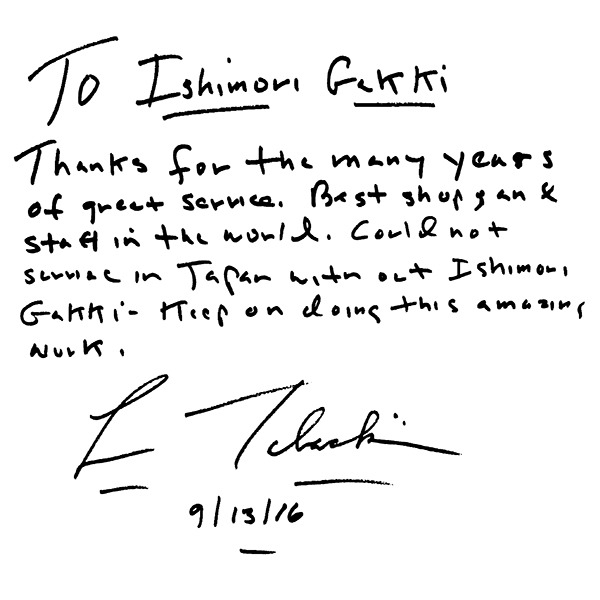 To Ishimori Gakki
Thanks for the many years
of great service. Best shops an &
staff in the world. Could not
service in Japan with out Ishimori
Gakki- Keep on doing this amazing
work.
L Tabackin
9/13/16